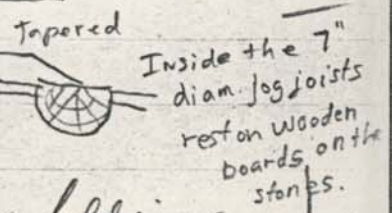 Tapered
Inside the 7"
diam. log joists
rest on wooden
boards on the
stones.